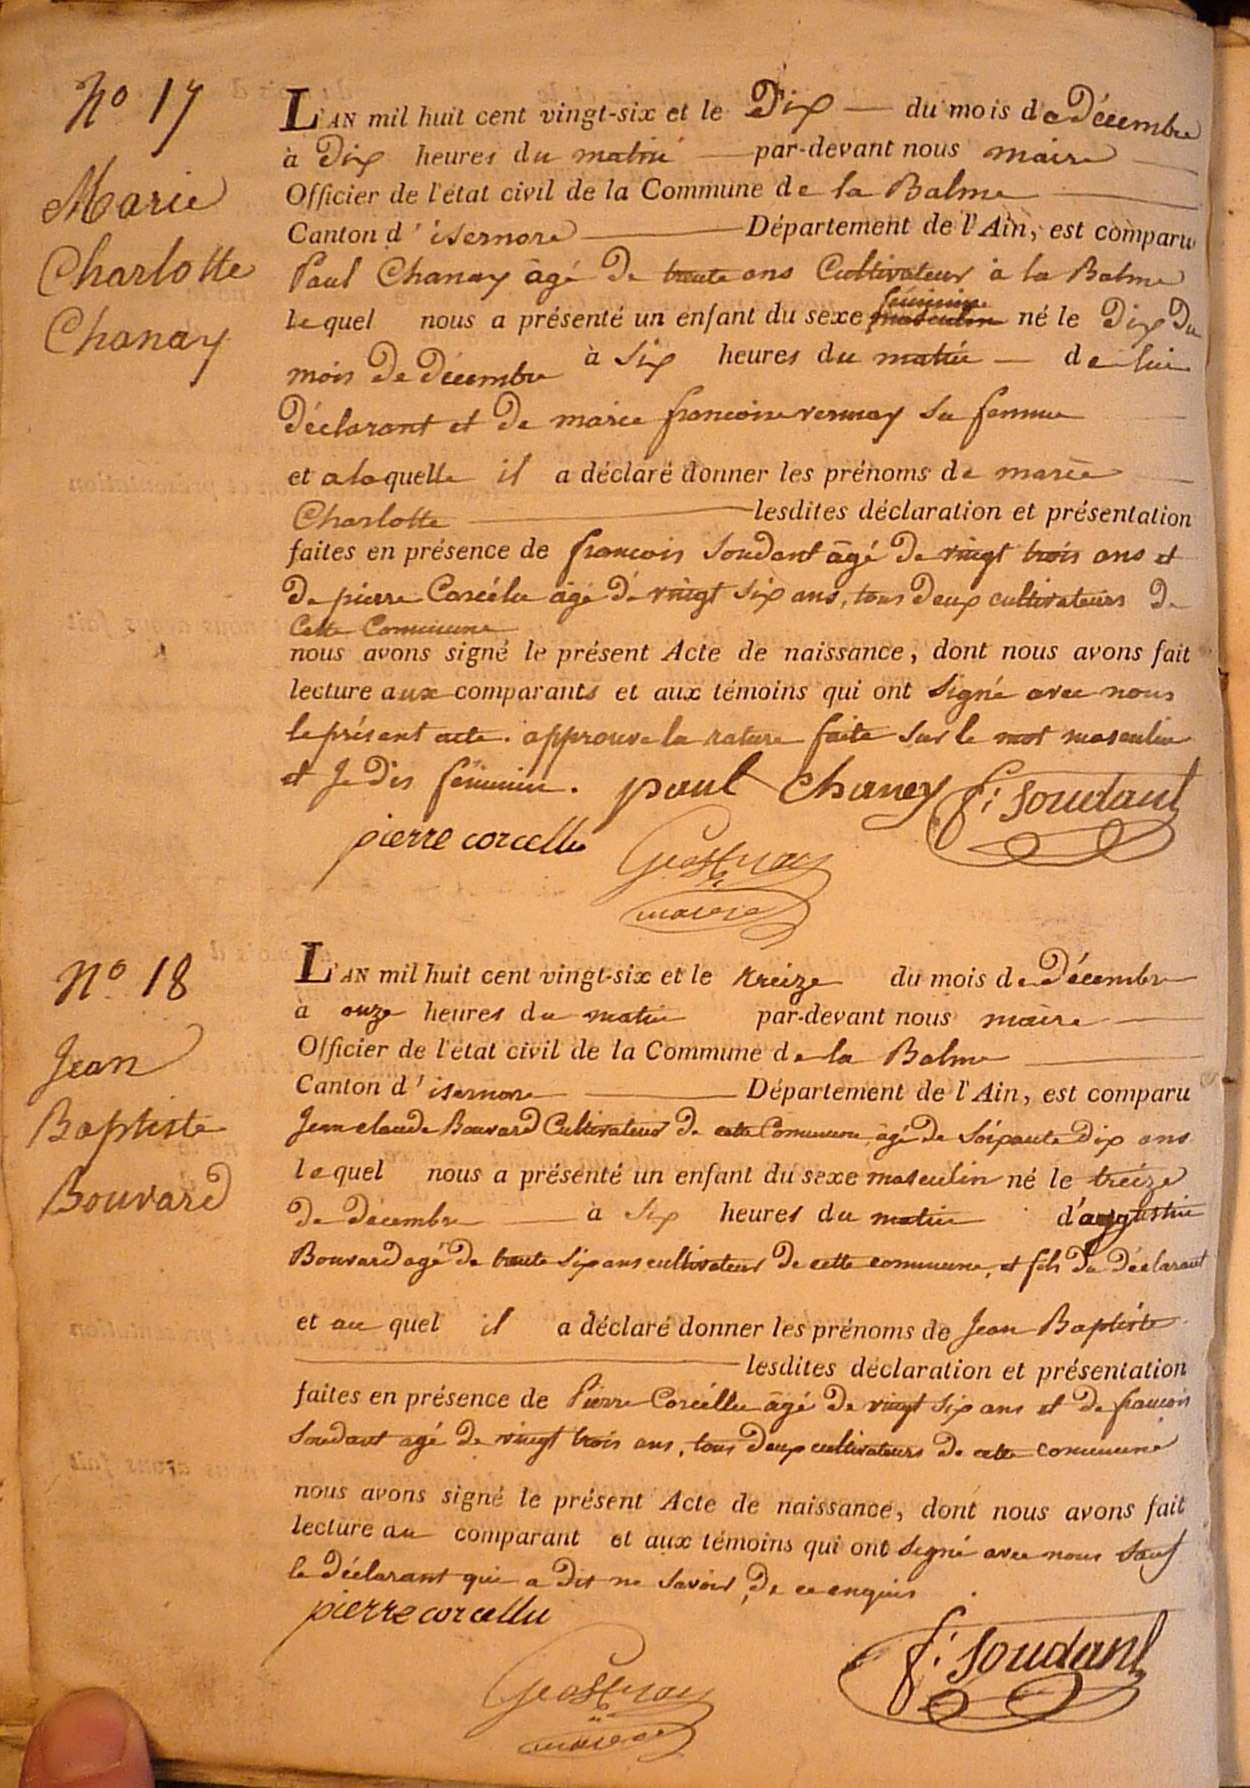 N° 17
Marie
Charlotte
Chanay
L'AN mil huit cent vingt-six et le Dix du mois de Décembre
à Dix heures du matin par-devant nous maire
Officier de l'état civil de la Commune de la Balme
Canton d'isernore Département de l'Ain, est comparu
Paul Chanay âgé de trente ans Cultivateur à la Balme
lequel nous a présenté un enfant du sexe masculin féminin né le Dix Du
mois De décembre à Six heures du matin de lui
déclarant et De marie françoise vermay Sa femme
et a laquelle il a déclaré donner les prénoms de marie
Charlotte lesdites déclaration et présentation
faites en présence de françois Soudant âgé De vingt trois ans et
De pierre Corcélle âgé dé vingt Six ans, tous Deux cultivateurs De
Cette Commune
nous avons signé le présent Acte de naissance, dont nous avons fait
lecture aux comparants et aux témoins qui ont Signé avec nous
le présent acte. approuve la rature faite Sur le mot masculin
et Je Dis féminin. paul Chaney f. Soudant
pierre corcelle
maire
N° 18
Jean
Baptiste
Bouvard
L'AN mil huit cent vingt-six et le treize du mois de Décembre
à onze heures du matin par-devant nous maire
Officier de l'état civil de la Commune de la Balme
Canton d'isernore Département de l'Ain, est comparu
Jean claude Bouvard Cultivateur De cette Commune âgé de Soixante Dix ans
lequel nous a présenté un enfant du sexe masculin né le treize
De décembre à Six heures du matin d'augustin
Bouvard agé De trente Six ans cultivateur De cette commune, et fils Du Déclarant
et au quel il a déclaré donner les prénoms de Jean Baptiste
lesdites déclaration et présentation
faites en présence de Pierre Corcélle âgé De vingt Six ans et De françois
Soudant agé de vingt trois ans, tous Deux cultivateurs De cette commune
nous avons signé le présent Acte de naissance, dont nous avons fait
lecture au comparant et aux témoins qui ont Signé avec nous Sauf
le Déclarant qui a Dit ne Savoir, De ce enquis
pierre corcelle
f. Soudant
maire